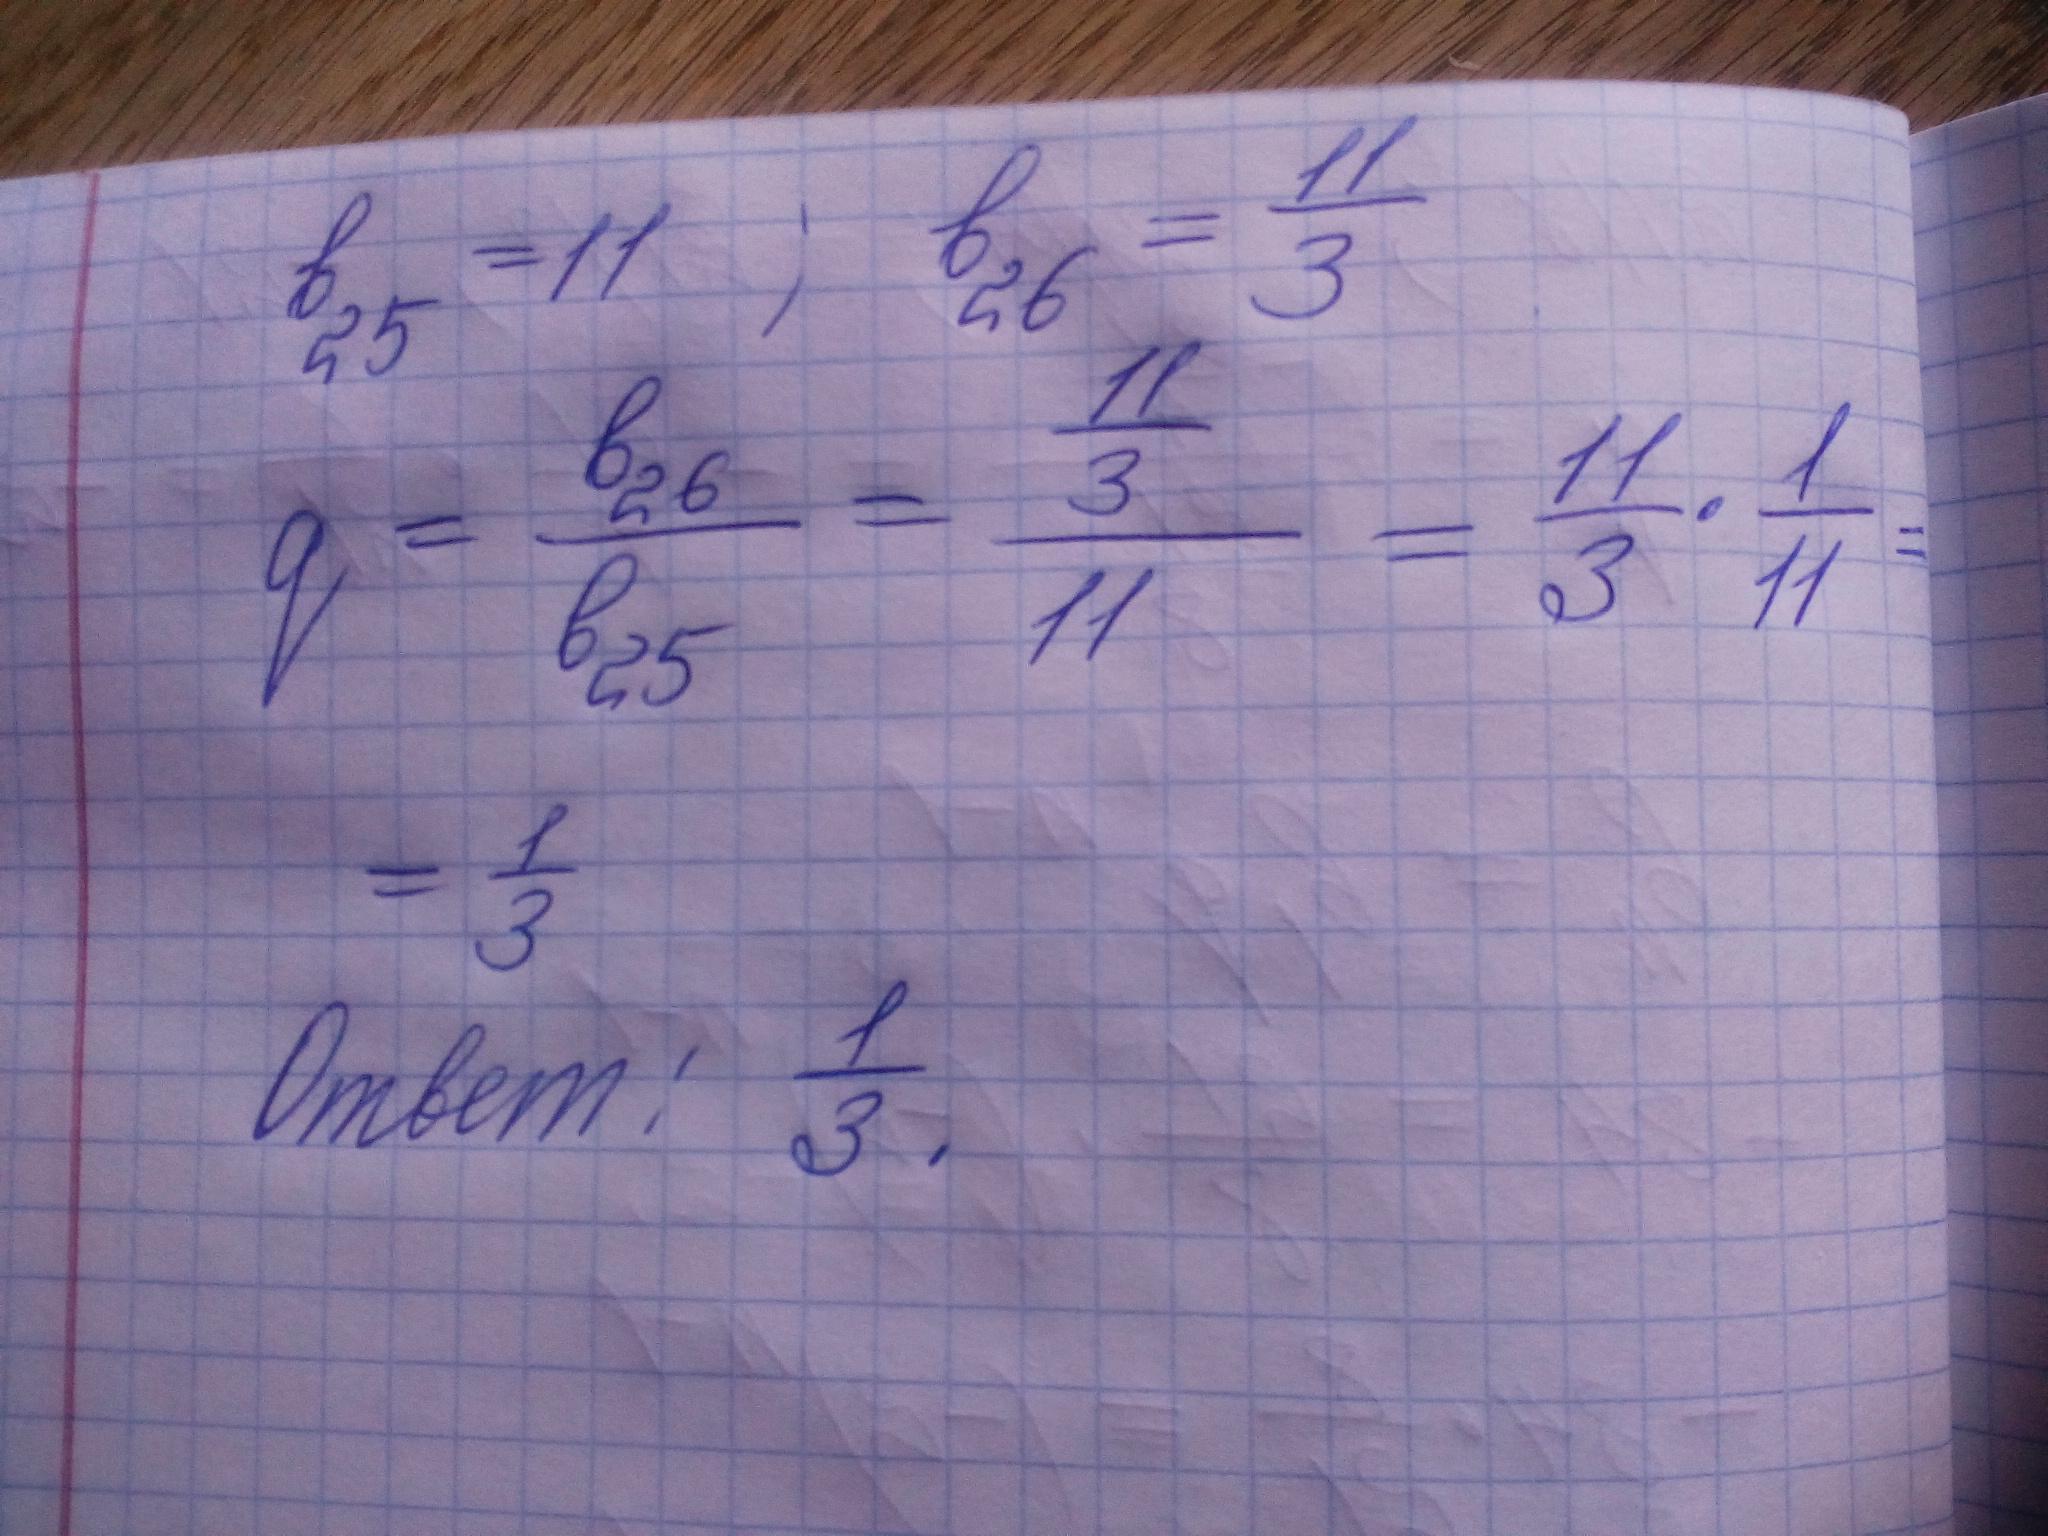 в₂₅ = 11 ; в₂₆ = 11/3
q = в₂₆/в₂₅ = (11/3)/11 = 11/3 · 1/11 =
= 1/3
Ответ: 1/3.